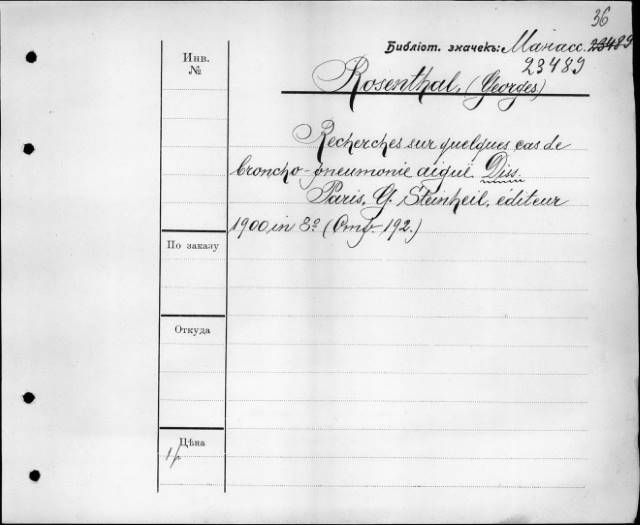 36
Библіот. значекъ: Манасс. 23489
23489
Инв.
№
Rosenthal, (Georges)
Recherches sur quelques cas de
broncho-pneumonie aiguë. Diss.
Paris, G. Steinheil, éditeur
1900 in 8º (Стр. 192.)
По заказу
Откуда
Цѣна